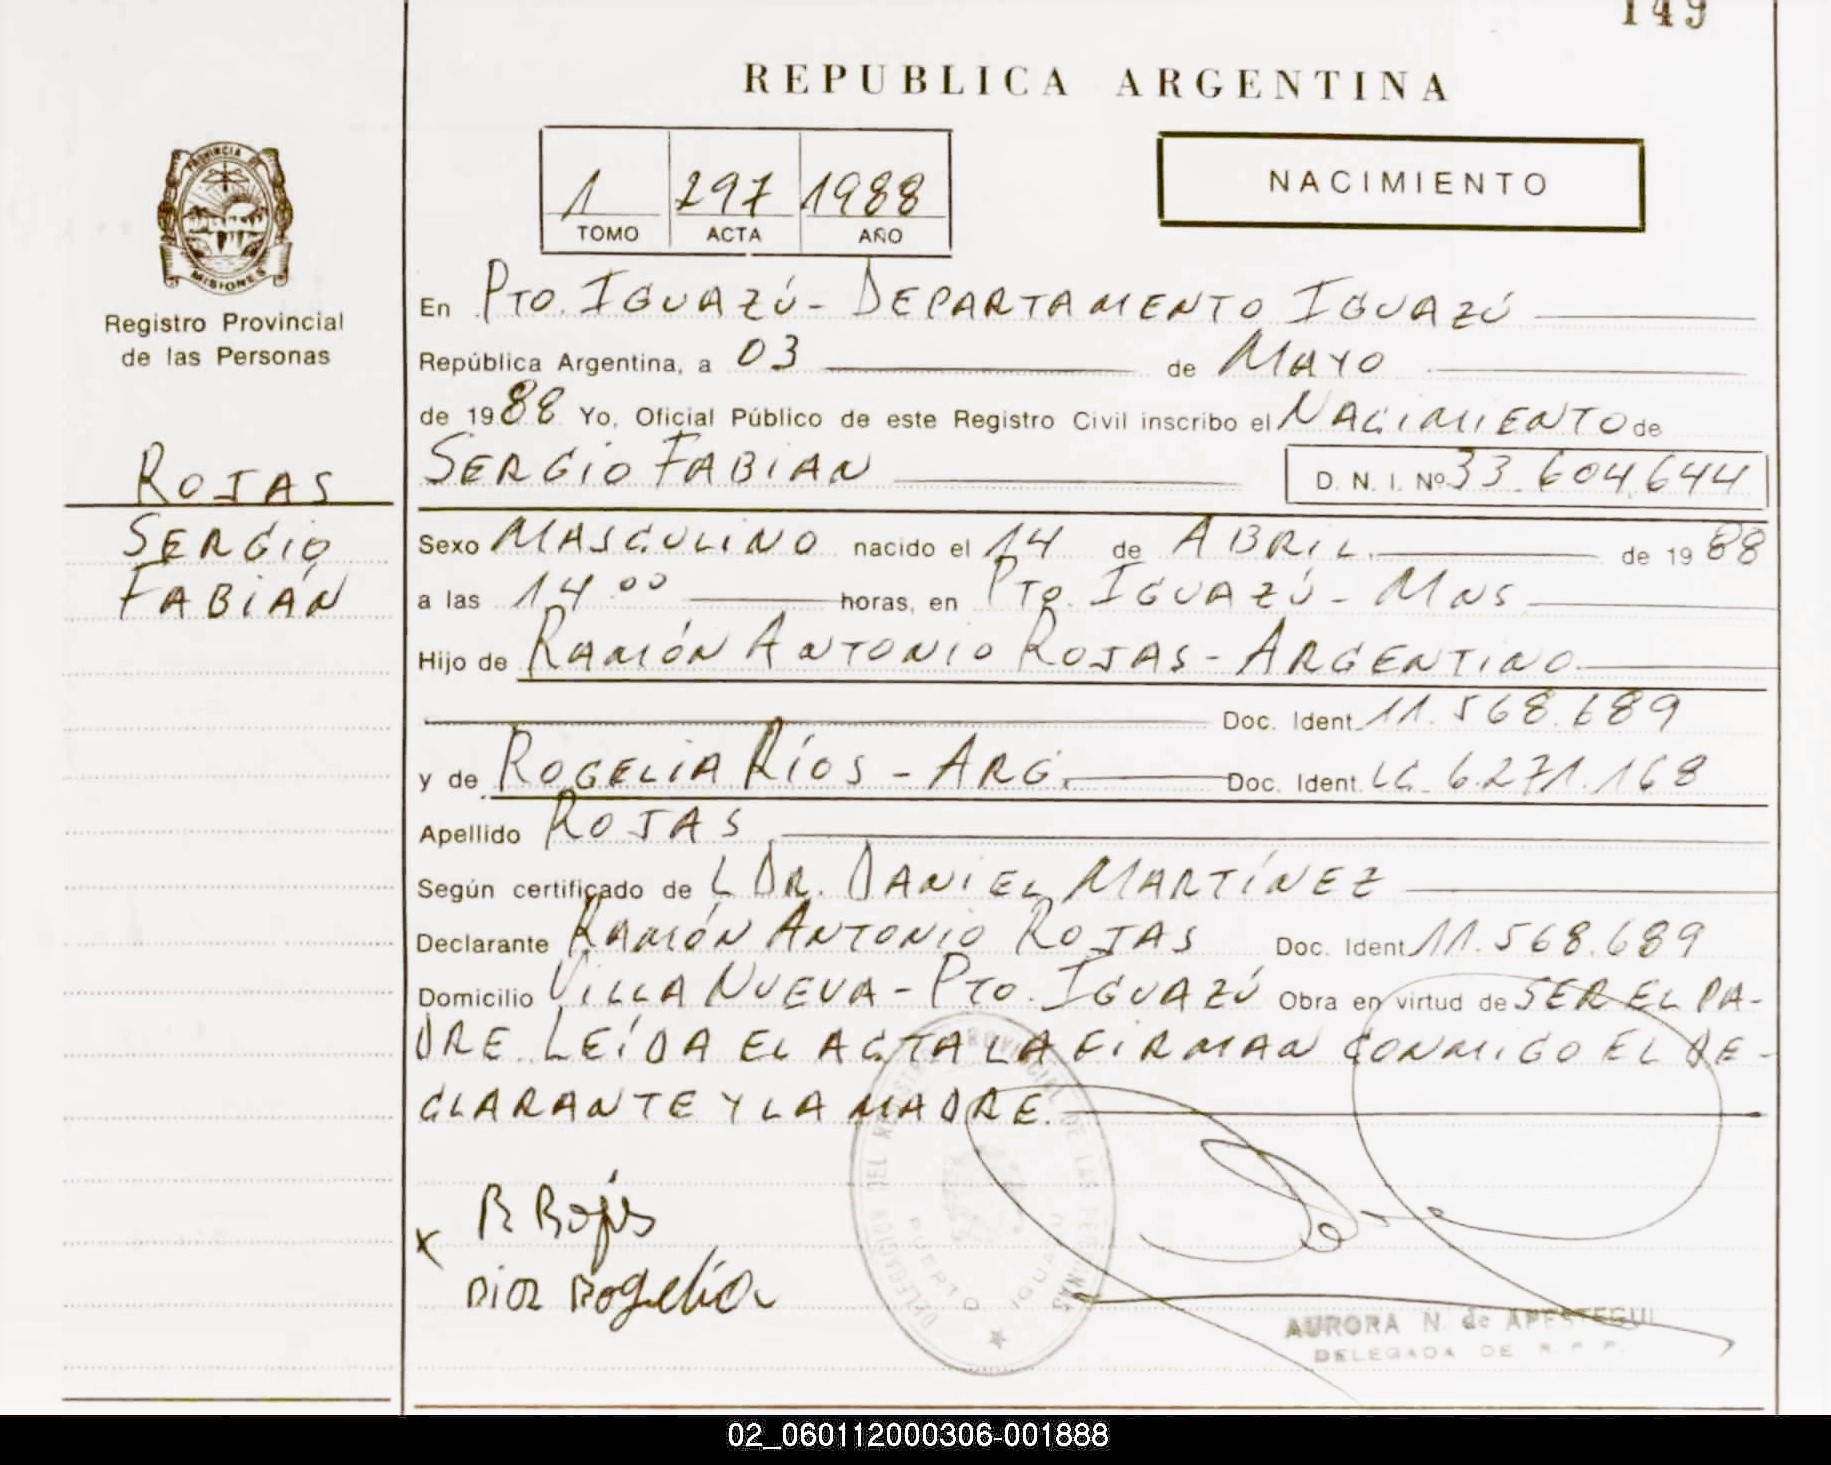 149
REPUBLICA ARGENTINA
PROVINCIA DE
MISIONES
Registro Provincial
de las Personas
1 297 1988
TOMO ACTA AÑO
NACIMIENTO
En PTO. IGUAZÚ - DEPARTAMENTO IGUAZÚ
República Argentina, a 03 de MAYO
de 1988 Yo, Oficial Público de este Registro Civil inscribo el NACIMIENTO de
SERGIO FABIAN D. N. I. Nº 33.604.644
ROJAS
SERGIO
FABIÁN
Sexo MASCULINO nacido el 14 de ABRIL de 1988
a las 14.00 horas, en PTO. IGUAZÚ - MNS
Hijo de RAMÓN ANTONIO ROJAS - ARGENTINO
Doc. Ident. 11.568.689
y de ROGELIA RÍOS - ARG. Doc. Ident. LC. 6.271.168
Apellido ROJAS
Según certificado de L DR. DANIEL MARTÍNEZ
Declarante RAMÓN ANTONIO ROJAS Doc. Ident. 11.568.689
Domicilio VILLA NUEVA - PTO. IGUAZÚ Obra en virtud de SER EL PA-
DRE. LEÍDA EL ACTA LA FIRMAN CONMIGO EL DE-
CLARANTE Y LA MADRE.
R Rojas
x
Rogelia
DELEGACION DEL REGISTRO PROVINCIAL DE LAS PERSONAS
PUERTO IGUAZU
AURORA N. de APESTEGUI
DELEGADA DE R. P. P.
02_060112000306-001888